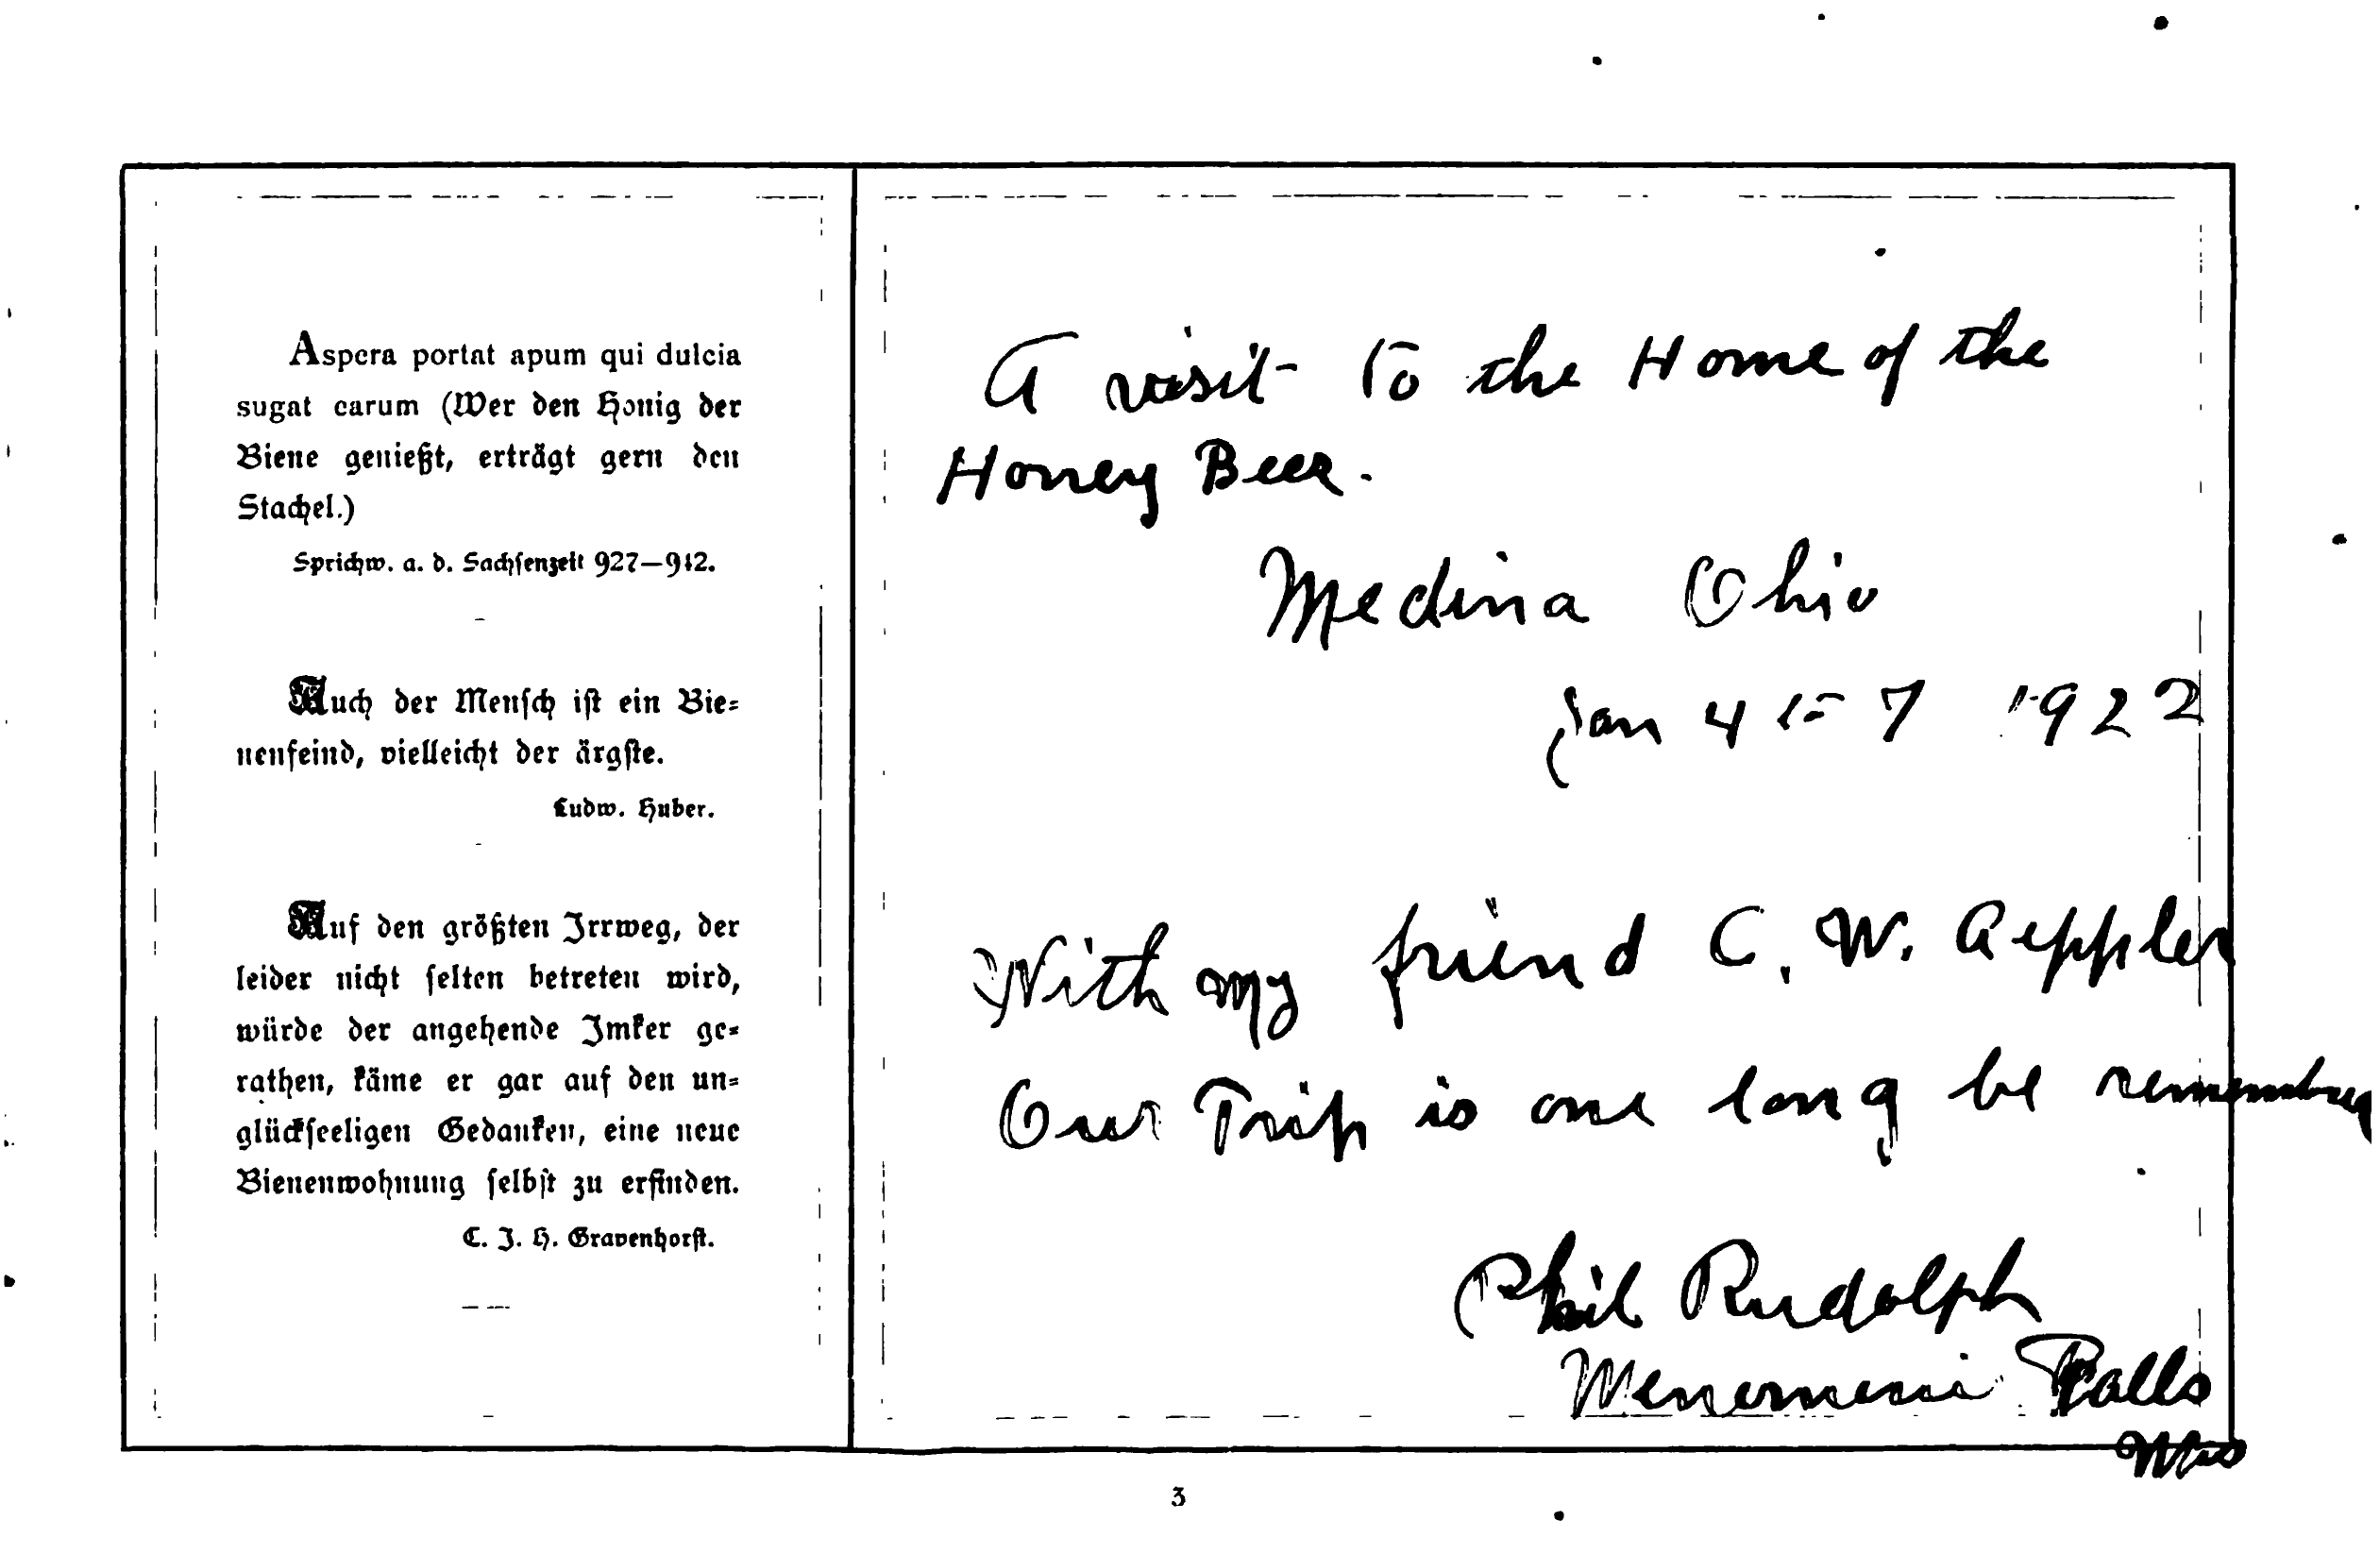 Aspera portat apum qui dulcia
sugat carum (Wer den Honig der
Biene genießt, erträgt gern den
Stachel.)
Sprichw. a. d. Sachsenzeit 927—912.
Auch der Mensch ist ein Bie-
nenfeind, vielleicht der ärgste.
Ludw. Huber.
Auf den größten Irrweg, der
leider nicht selten betreten wird,
würde der angehende Imker ge-
rathen, käme er gar auf den un-
glückseeligen Gedanken, eine neue
Bienenwohnung selbst zu erfinden.
C. J. H. Gravenhorst.
A visit to the Home of the
Honey Bee.
Medina Ohio
Jan 4 to 7 1922
With my friend C. W. Aeppler
Our Trip is one long be
Phil Rudolph
Menomenie Falls
Wis
3